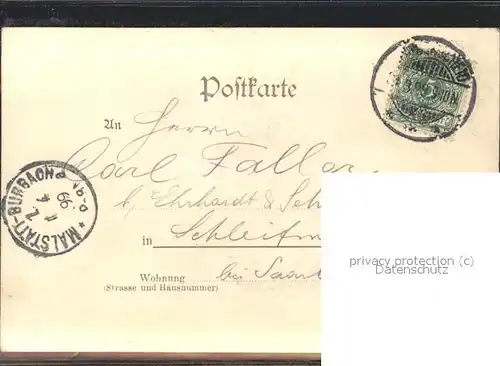 Postkarte
An Herrn
Carl Faller
b/ Ehrhardt & Seh
in Schleifm
Wohnung bei Saar
(Strasse und Hausnummer)
MALSTATT-BURBACH
99
privacy protection (c)
Datenschutz